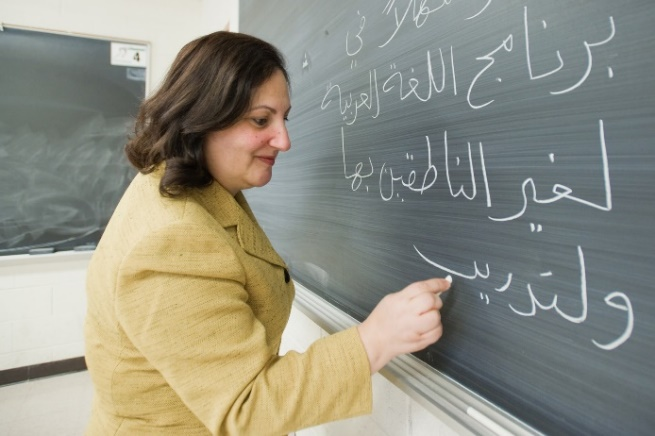 وسهلاً في
برنامج اللغة العربية
لغير الناطقين بها
ولتدريب
4